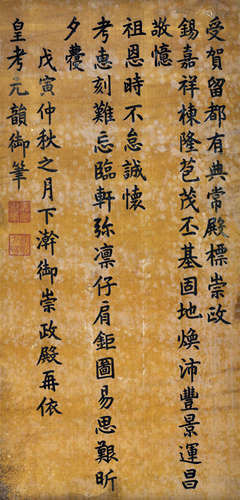 受賀留都有典常殿標崇政
錫嘉祥棟隆苞茂丕基固地煥沛豐景運昌
敬憶
祖恩時不怠誠懷
考惠刻難忘臨軒弥凜仔肩鉅圖易思艱昕
夕虁
戊寅仲秋之月下澣御崇政殿再依
皇考元韻御筆